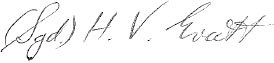 (Sgd.) H. V. Evatt